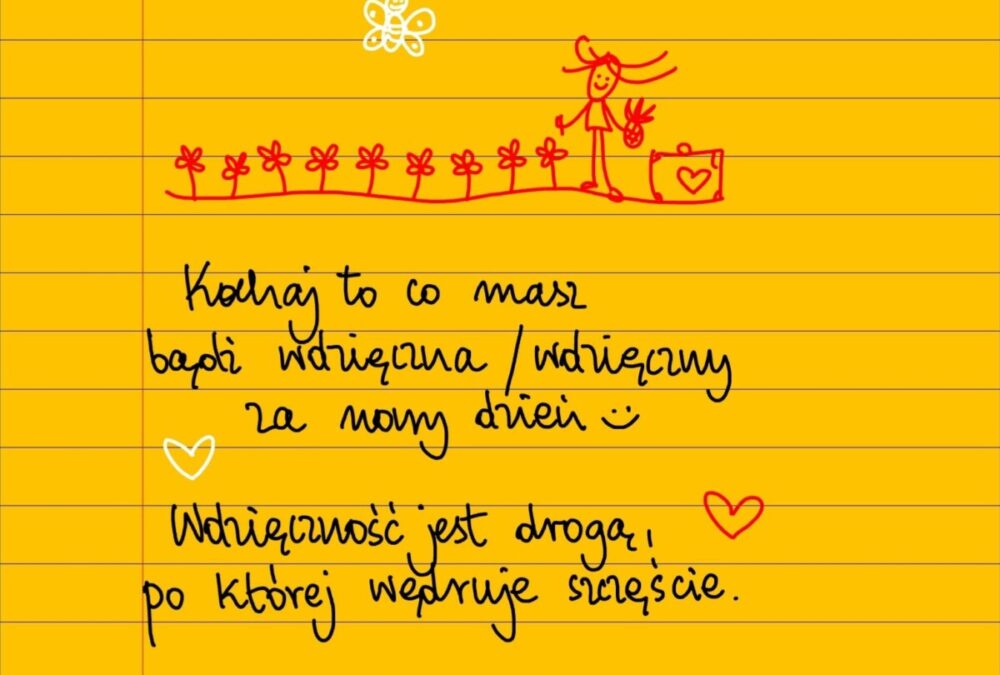 Kochaj to co masz
bądź wdzięczna / wdzięczny
za nowy dzień :)
Wdzięczność jest drogą,
po której wędruje szczęście.